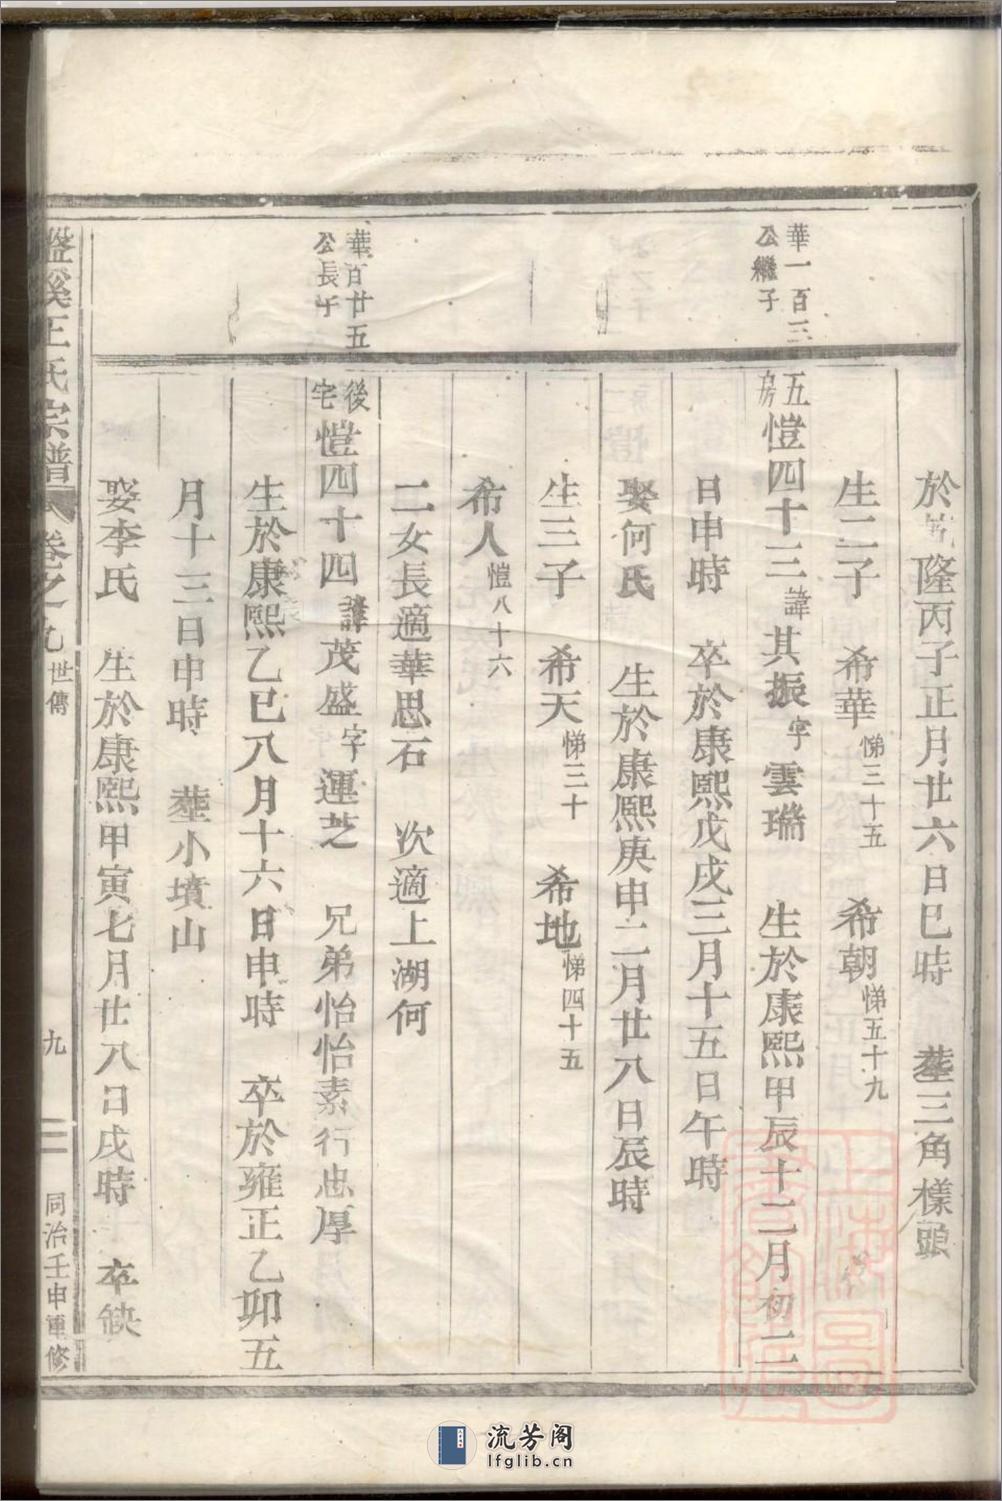 華一百三
公繼子
華百廿五
公長子
於乾隆丙子正月廿六日巳時 塟三角樣頭
生二子 希華悌三十五 希朝悌五十九
五房愷四十三諱其振字雲瑞 生於康熙甲辰十二月初二
日申時 卒於康熙戊戌三月十五日午時
娶何氏 生於康熙庚申二月廿八日辰時
生三子 希天悌三十 希地悌四十五
希人愷八十六
二女長適華思石 次適上湖何
後宅愷四十四諱茂盛字運芝 兄弟怡怡素行忠厚
生於康熙乙巳八月十六日申時 卒於雍正乙卯五
月十三日申時 塟小墳山
娶李氏 生於康熙甲寅七月廿八日戌時 卒缺
盤溪王氏宗譜 卷之九 世傳 九 同治壬申重修
上海圖書館藏
流芳阁
lfglib.cn